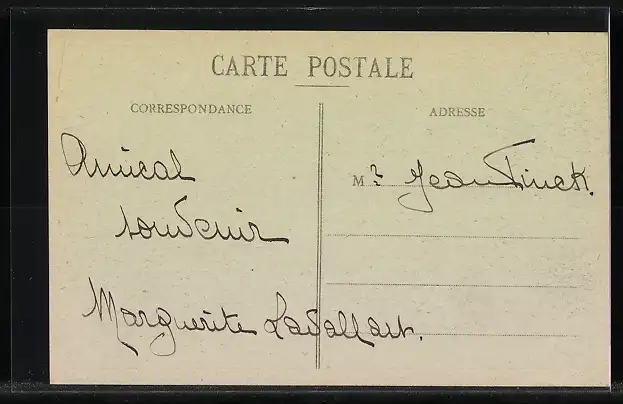 CARTE POSTALE
CORRESPONDANCE
ADRESSE
Amical
souvenir
Marguerite
M r Jean Finck.